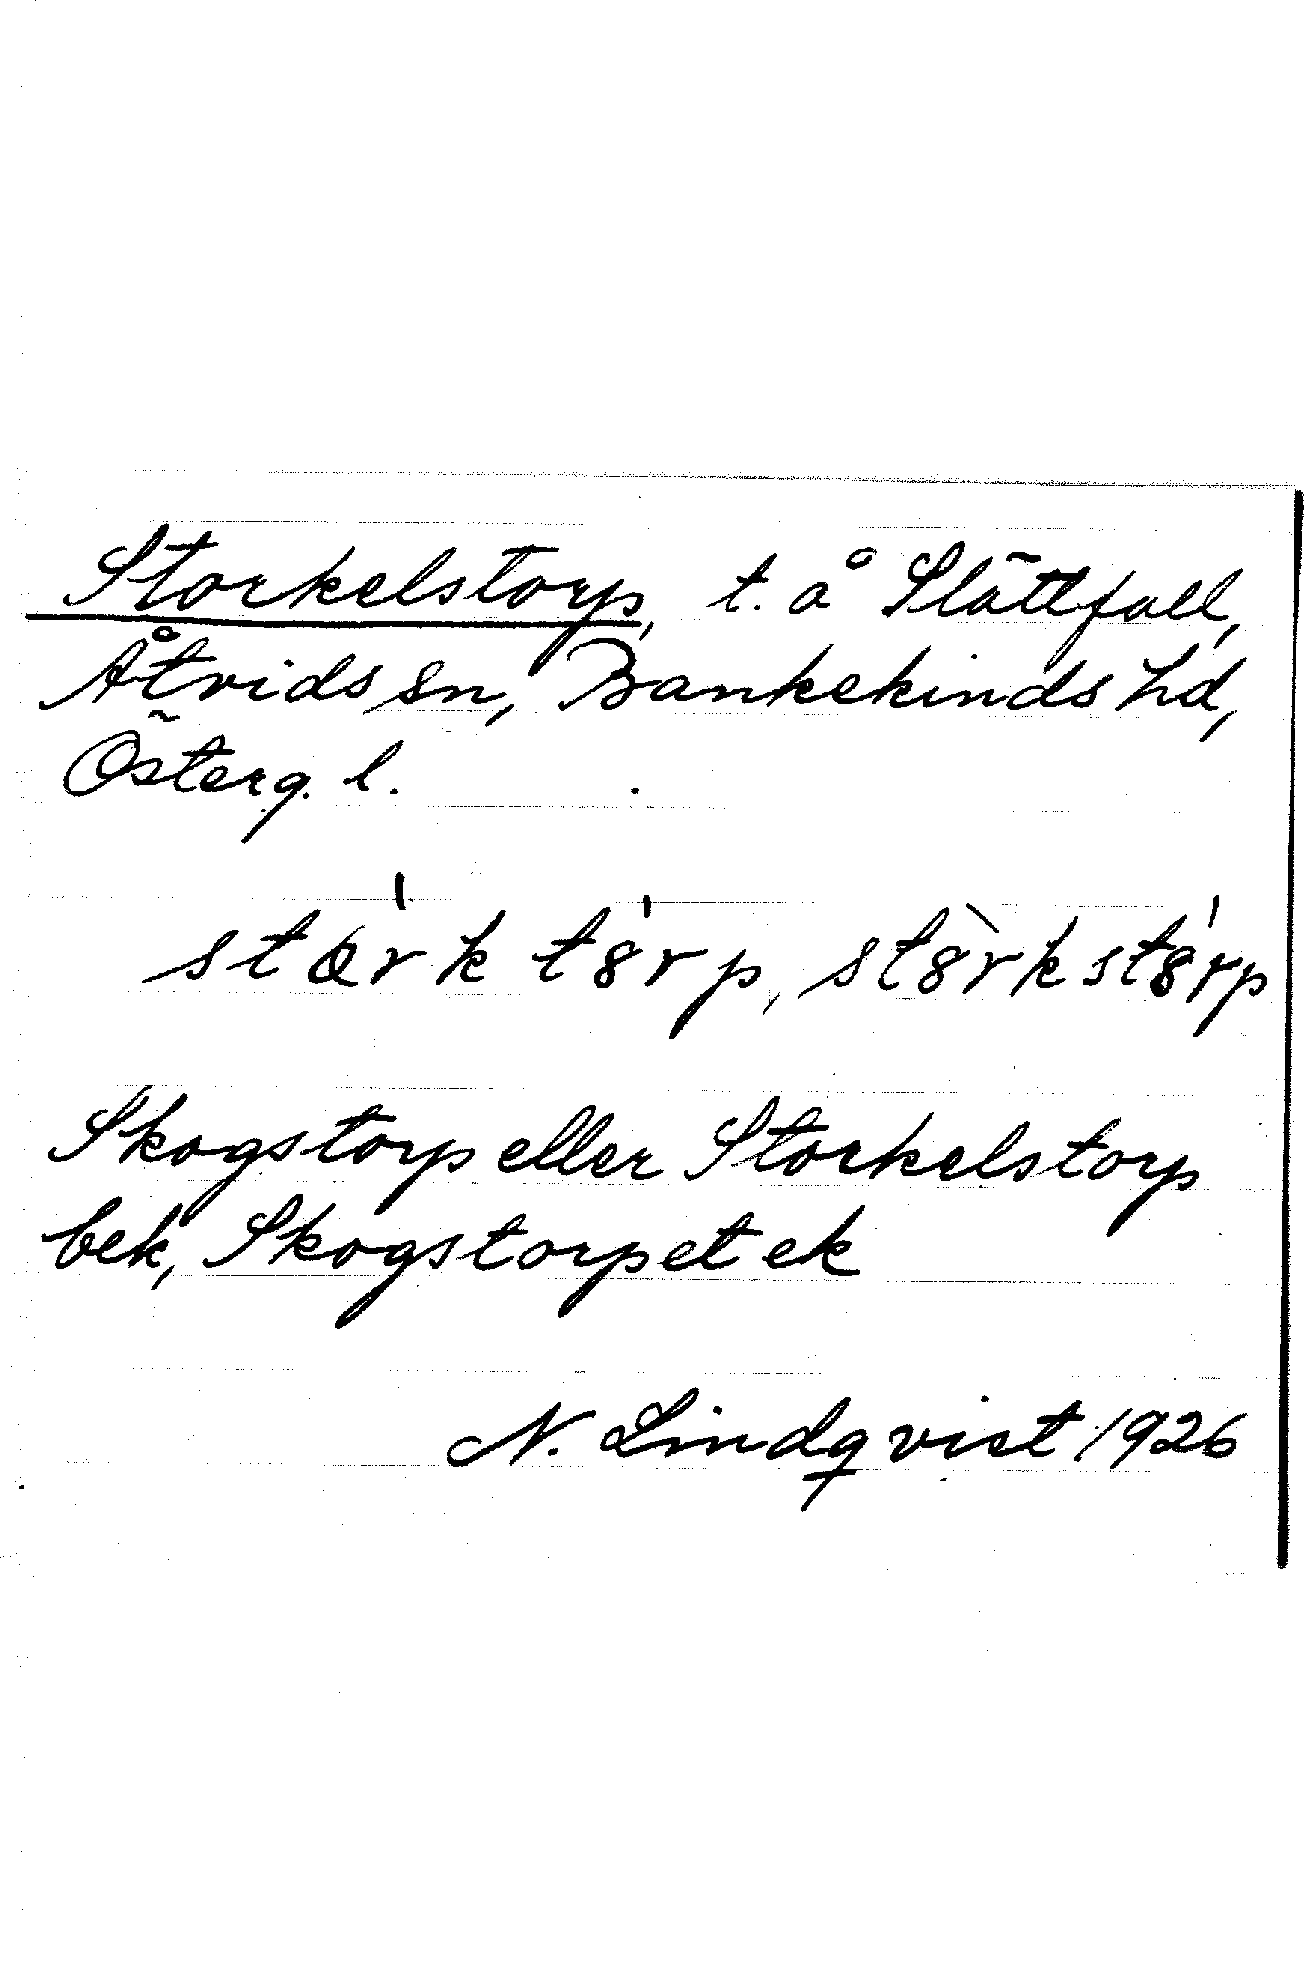 Storkelstorp, t. å Slättfall,
Åtvids sn, Bankekinds hd,
Österg. l.
stơ̇rk tȯrp, stòrkstȯrp
Skogstorp eller Storkelstorp
bek, Skogstorpet ek
N. Lindqvist 1926